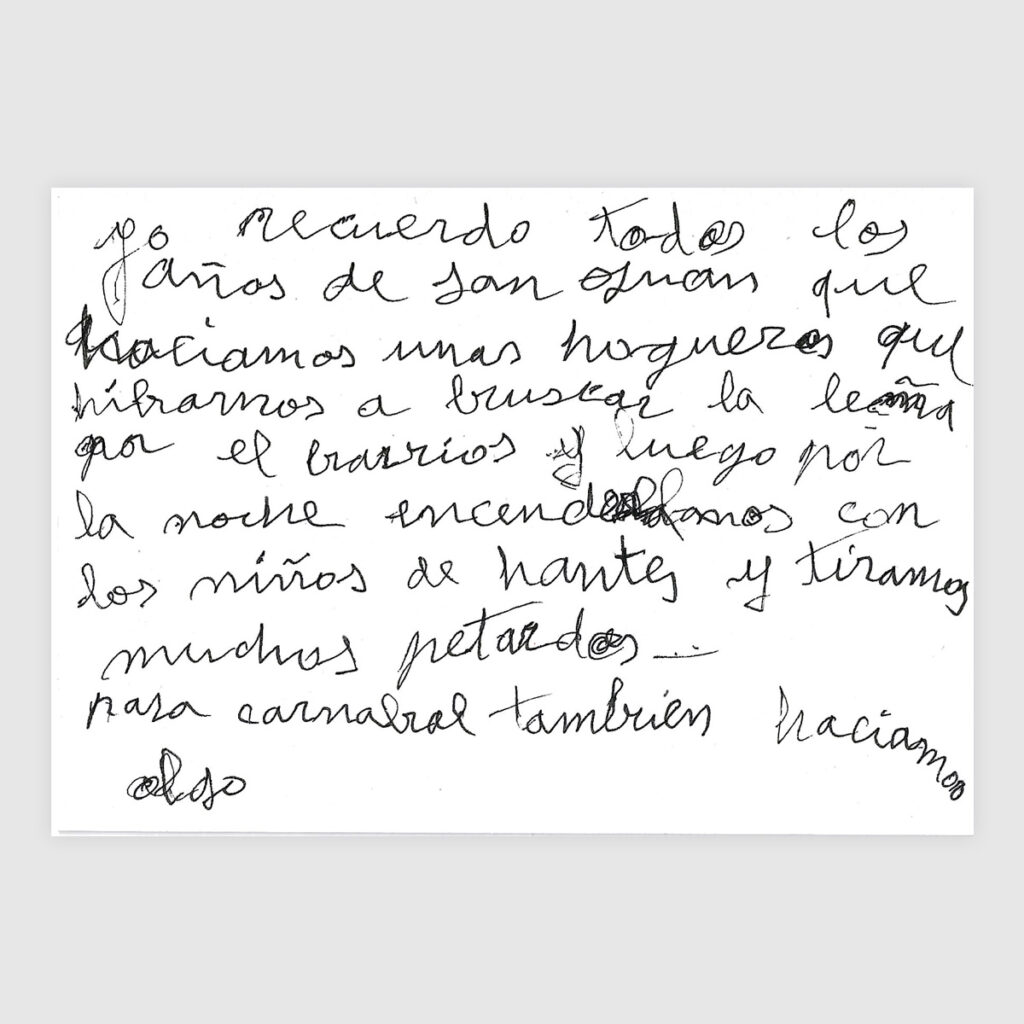 yo recuerdo todos los
años de san Juan que
haciamos unas hogueras que
hibamos a buscar la leña
por el barrios y luego por
la noche encendiamos con
los niños de hantes y tiramos
muchos petardos...
para carnabal tambien haciamos
algo